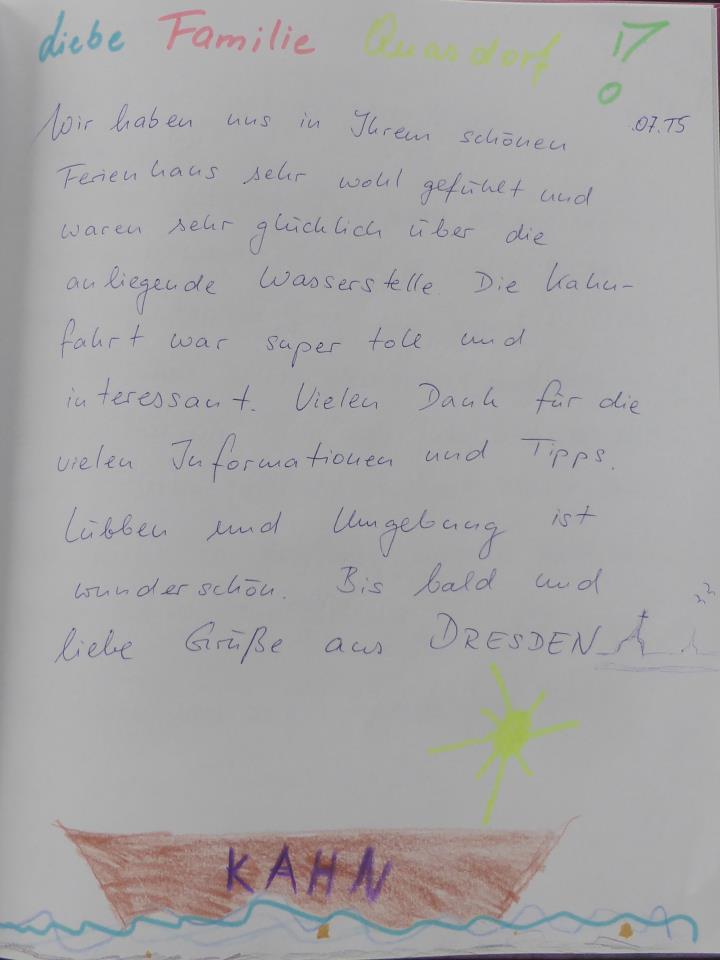 liebe Familie Quasdorf !
07.15
Wir haben uns in Ihrem schönen
Ferienhaus sehr wohl gefühlt und
waren sehr glücklich über die
anliegende Wasserstelle. Die Kahn-
fahrt war super toll und
interessant. Vielen Dank für die
vielen Informationen und Tipps.
Lübben und Umgebung ist
wunderschön. Bis bald und
liebe Grüße aus DRESDEN
KAHN